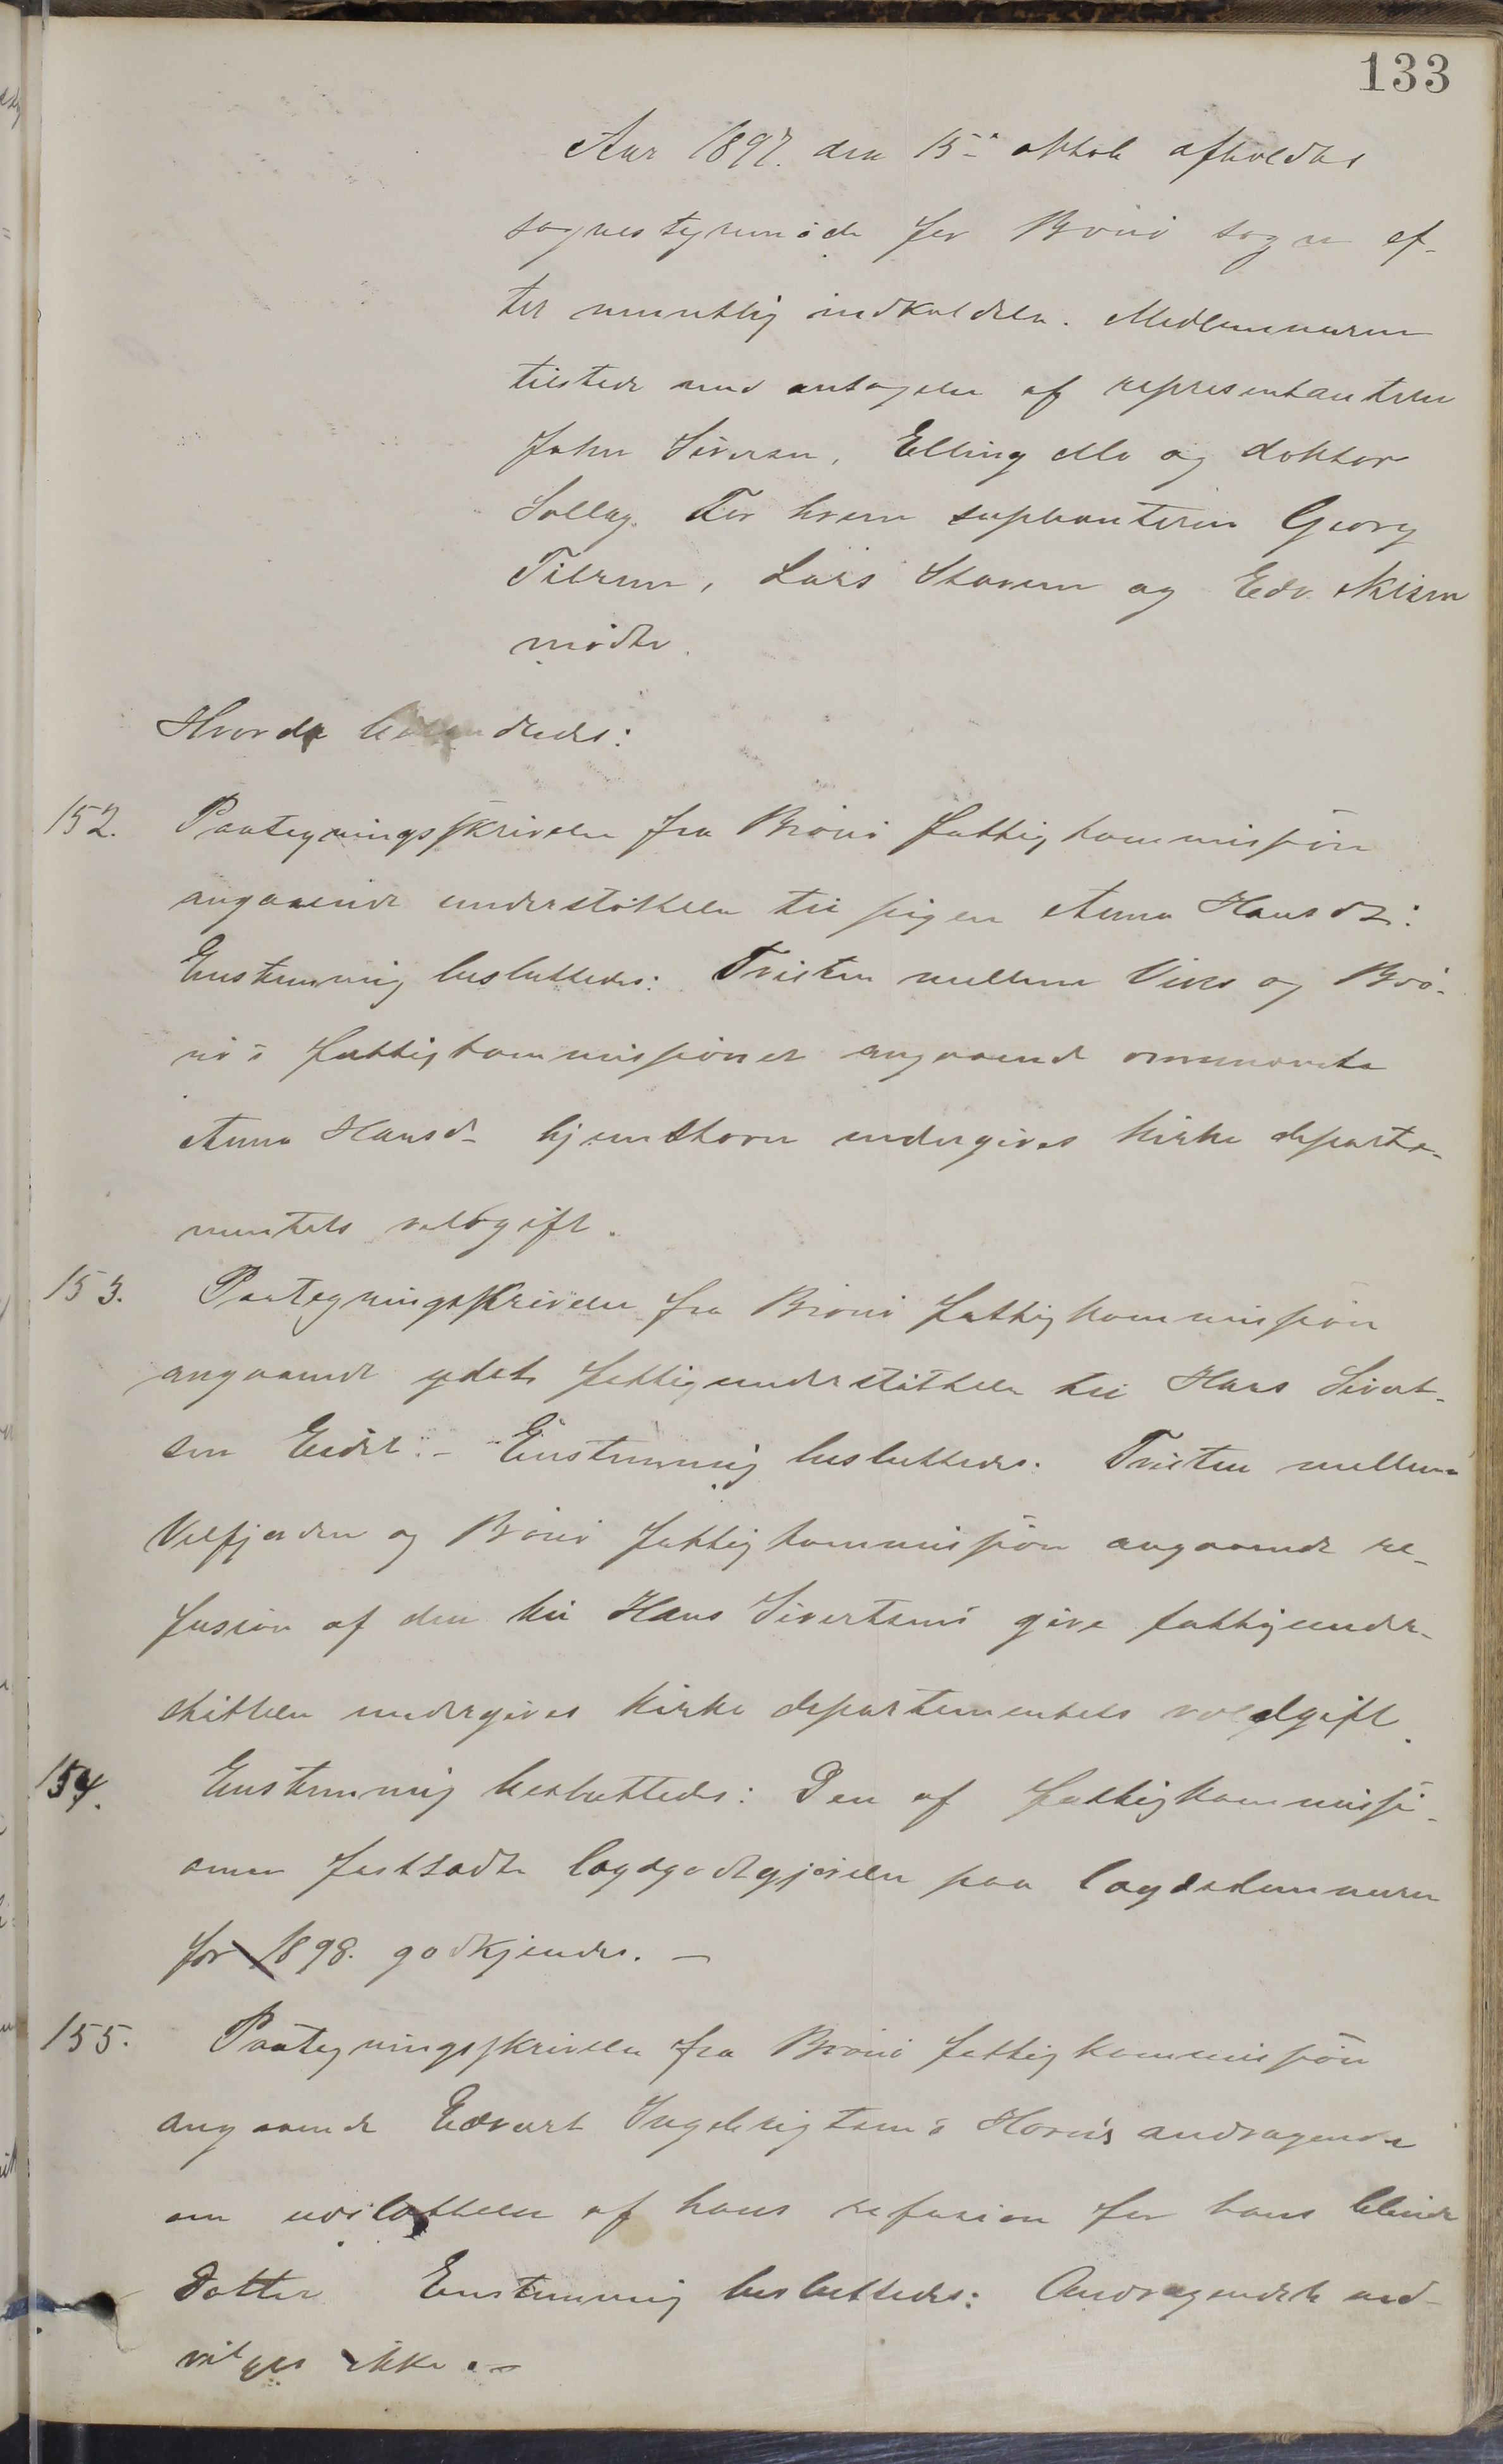 133
Aar 1897. den 15de oktob afholdtes
sognestyremøde for Brønø sogn ef-
ter muntlig indkaldelse. Medlemmerne
tilstede med antagelse af representanterne
John Siversen, Elling Mo og doktor
Sollag. For hvem suplianterne Georg
Tilrem, Lars Staven og Edv. Nilsen
mødte.
Hvorda behandledes:
152. Paategningsskrivelse fra Brønø fattigkommission
angaaende understøttelse til pigen Anna Hansdr:
Enstemmig besluttedes: Tvisten mellem Viks og Brø-
nø's fattigkommissioner angaaende ommeldte
Anna Hansd- hjemstavn undergives kirke departe-
mentets voldgift.
153. Paategningsskrivelse fra Brønø fattigkommission
angaaende ydet fattigunderstøttelse til Hans Sivert-
sen Eidet:- Enstemmig besluttedes. Tvisten mellem
Velfjorden og Brønø fattigkommission angaaende re-
fusion af den til Hans Sivertsens give fattigunder-
støttelse undergives kirke departementets voldgift.
154. Enstemmig besluttedes: Den af fattigkommissi-
onen fastsadte lagdgodtgjørelse paa lagdslemmerne
for 1898. godkjendes. -
155. Paategningsskrivelse fra Brønø fattigkommission
angaaende Edvart Ingebrigtsen's Horn's andragende
om udslettelse af hans refusion for hans blinde
Datter Enstemmig besluttedes: Andragendet ind-
vilges ikke.-